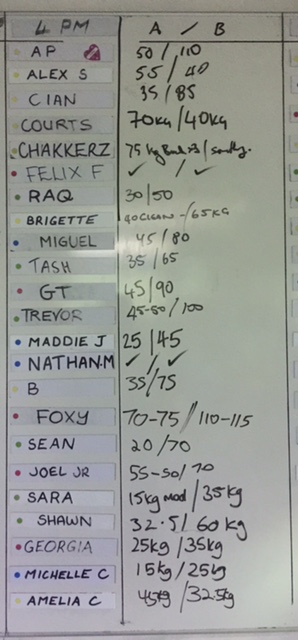 4 PM A / B
AP 50/110
ALEX S 55/
CIAN 35/85
COURTS 70kg/40kg
CHAKKERZ 75 kg
FELIX F ✓ / ✓
RAQ 30/50
BRIGETTE 40 CLEAN - / 65KG
MIGUEL 45/80
TASH 35/65
GT 45/90
TREVOR 45-50/100
MADDIE J 25/45
NATHAN.M ✓ / ✓
B 35/75
FOXY 70-75 // 110-115
SEAN 20/70
JOEL JR 55-50/70
SARA 15kg mod/35kg
SHAWN 32.5/60 kg
GEORGIA 25kg/35kg
MICHELLE C 15kg/25kg
AMELIA C 45kg/32.5kg